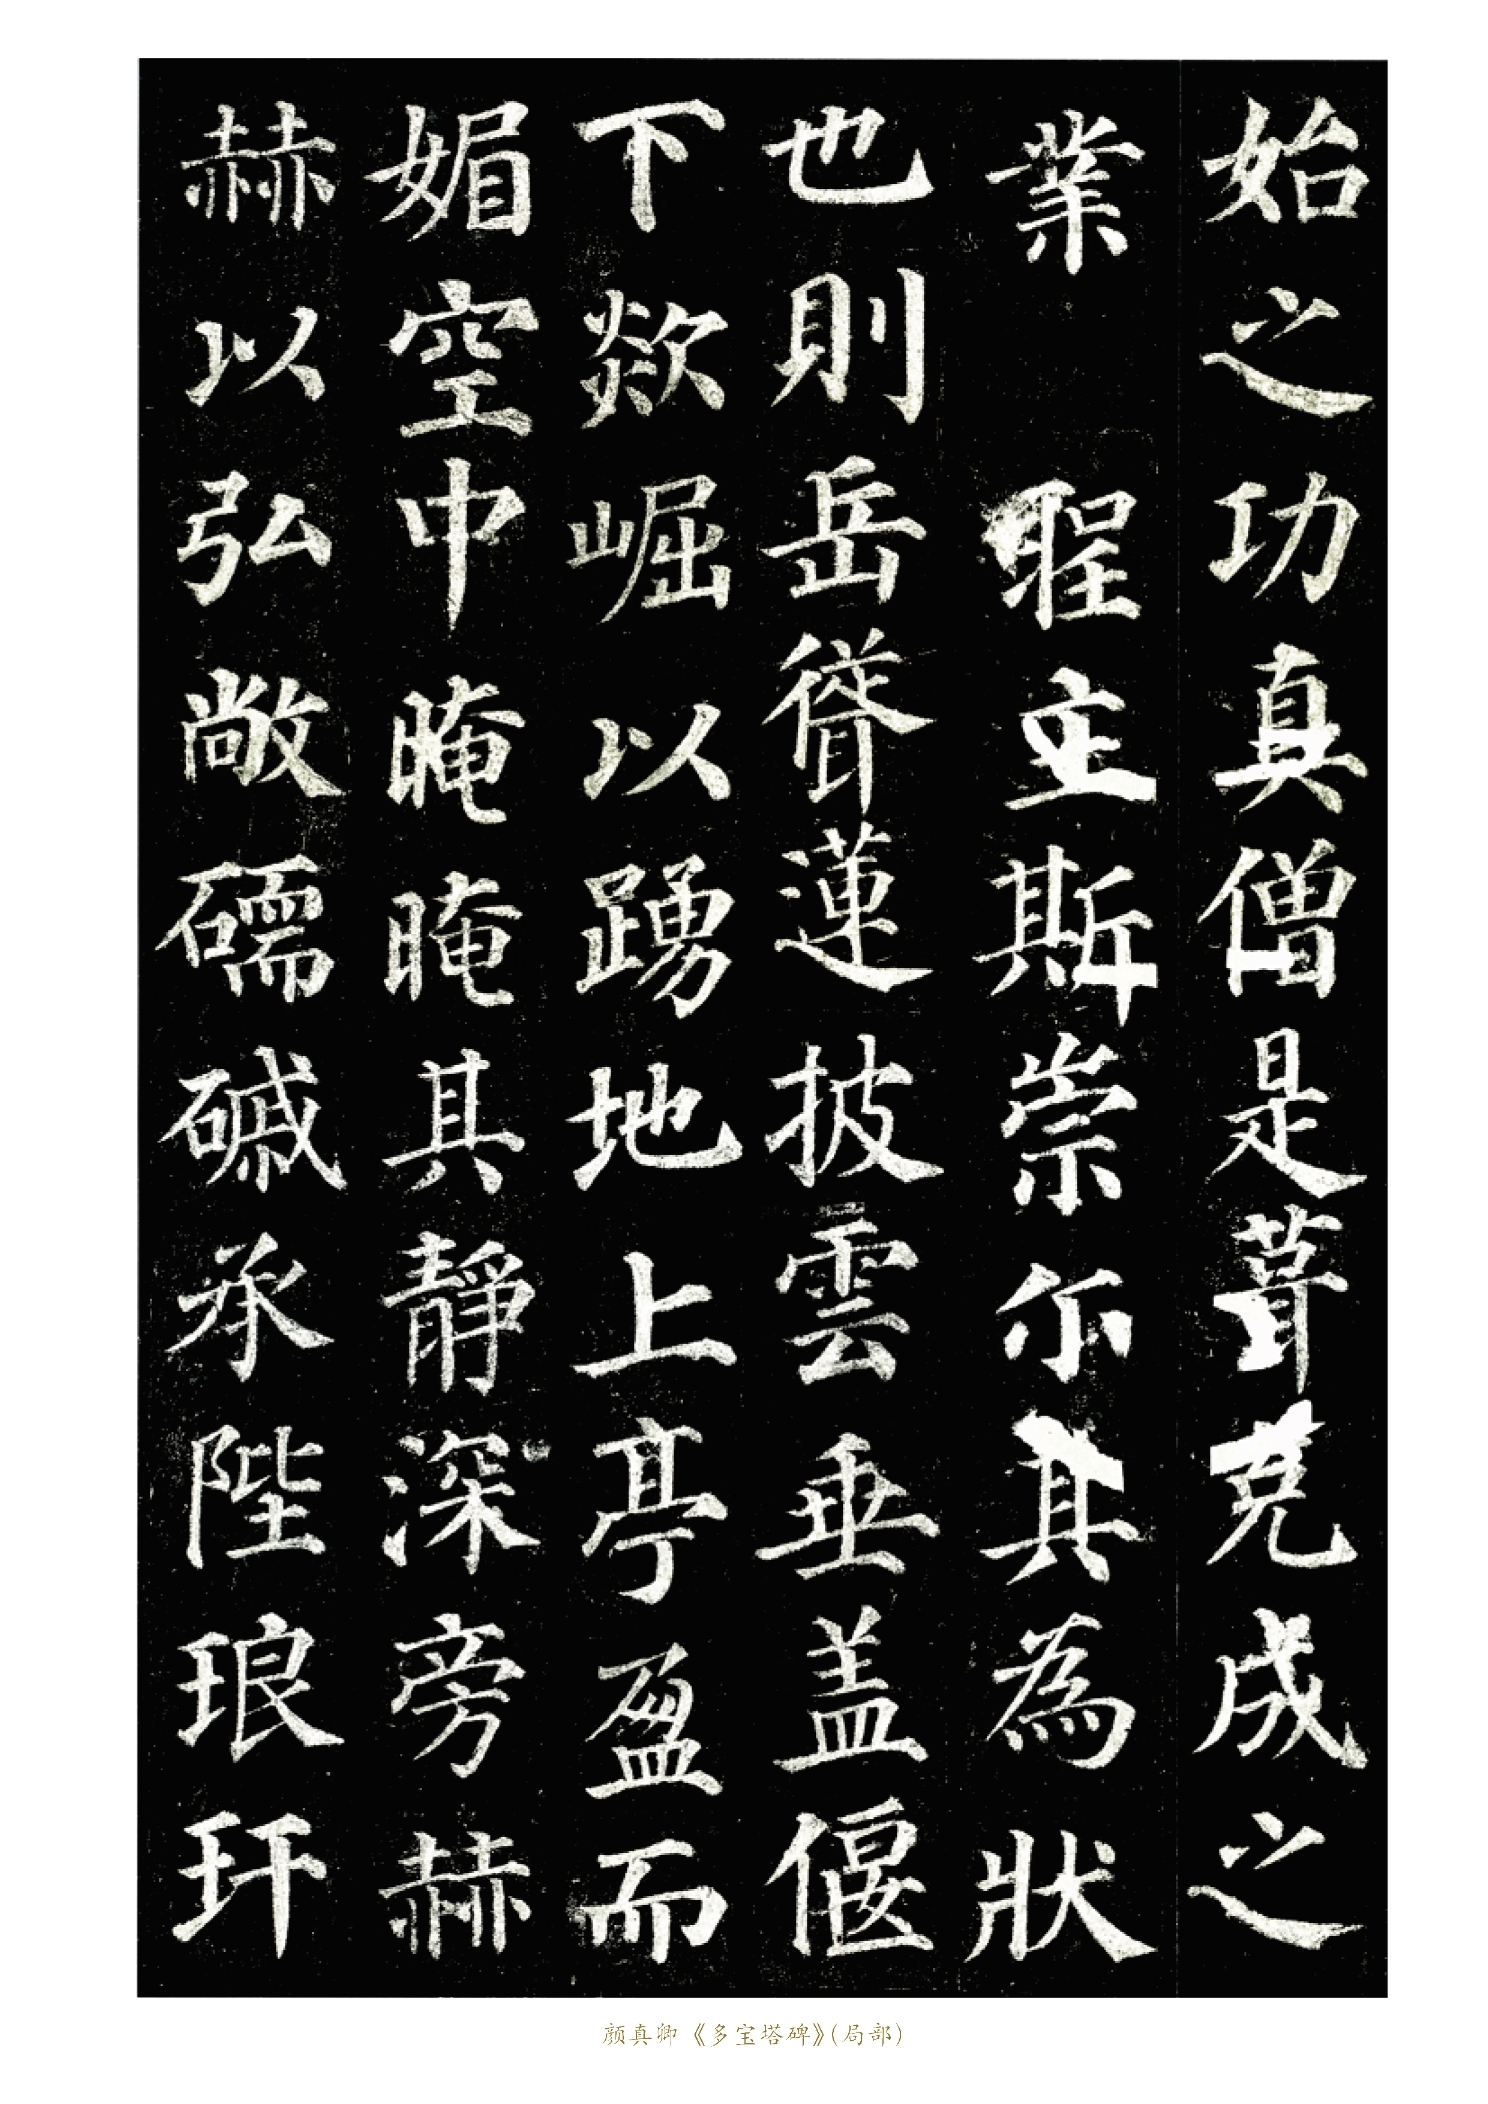 始之功真僧是葺克成之
業 聖主斯崇尓其為狀
也則岳聳蓮披雲垂盖偃
下欻崛以踴地上亭盈而
媚空中晻晻其靜深旁赫
赫以弘敞礝磩承陛琅玕
颜真卿《多宝塔碑》(局部)